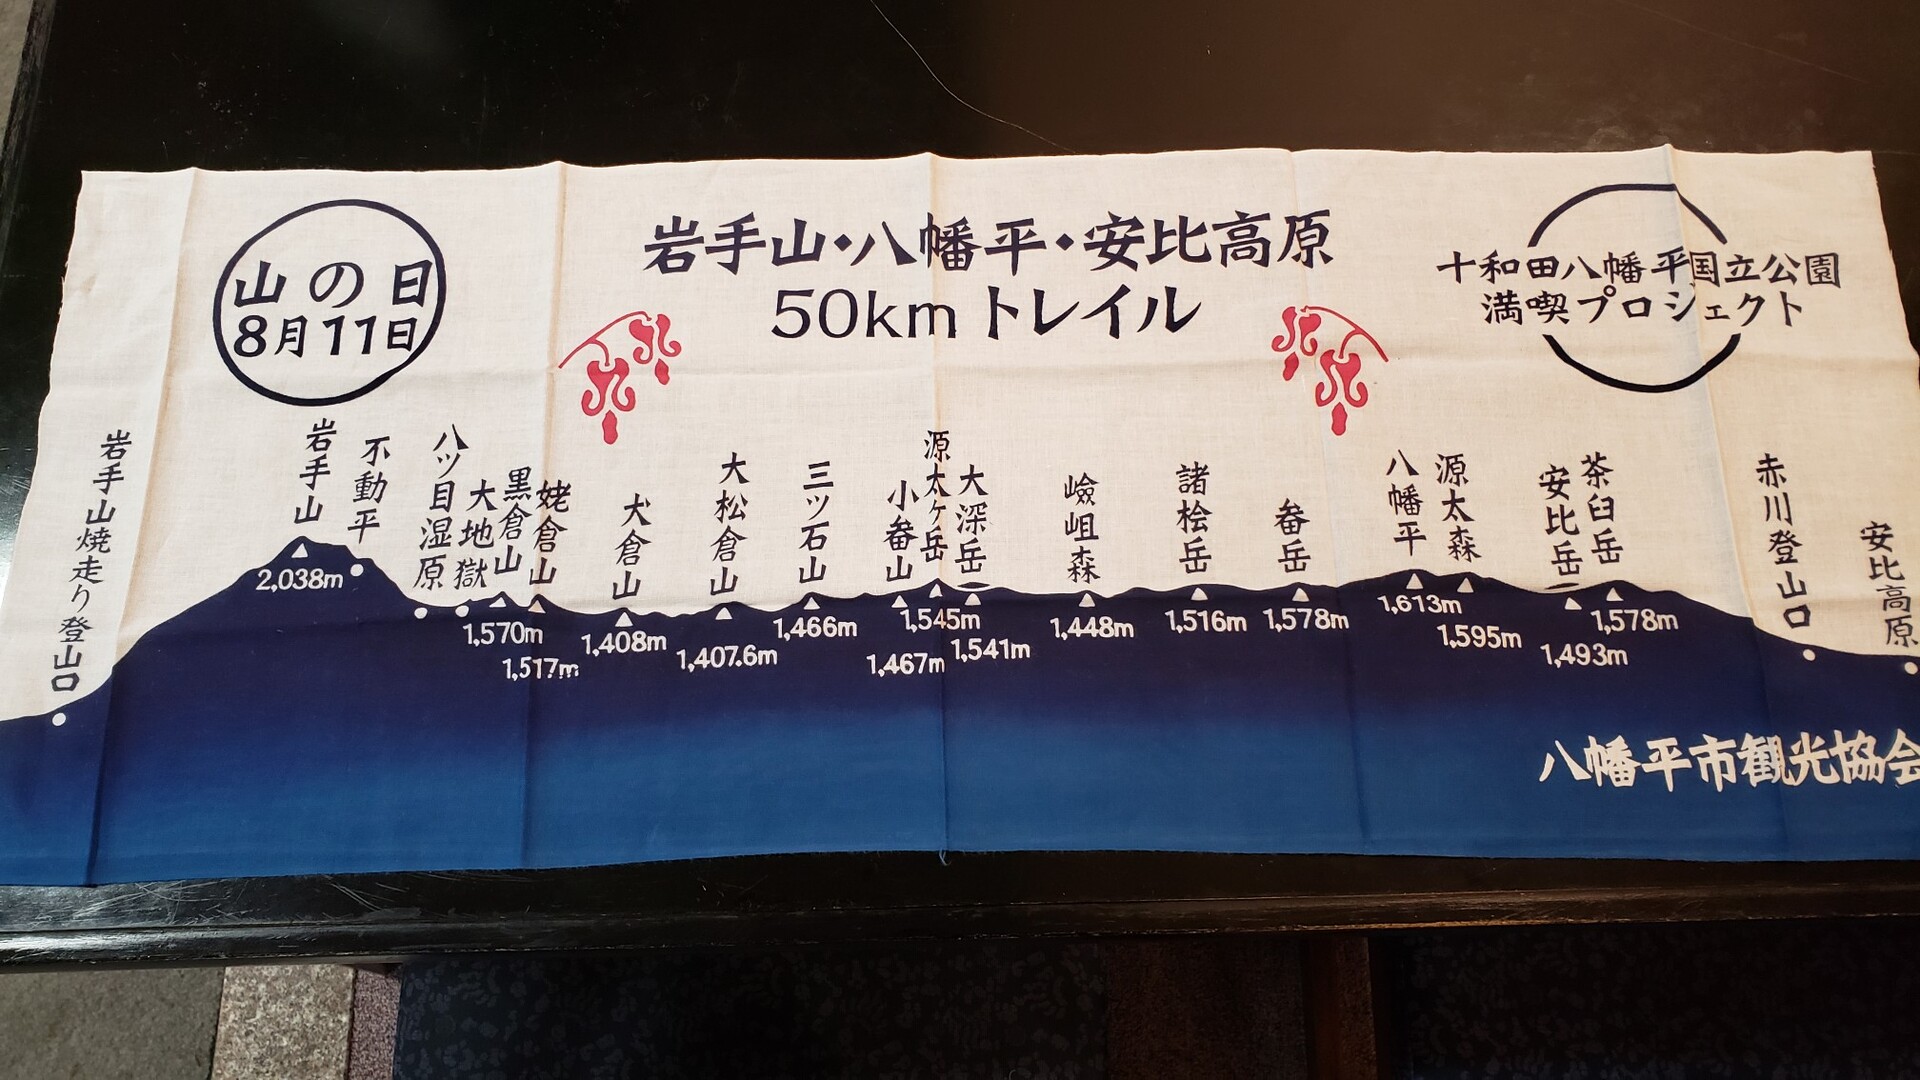 山の日
8月11日
岩手山・八幡平・安比高原
50kmトレイル
十和田八幡平国立公園
満喫プロジェクト
岩手山焼走り登山口
岩手山
2,038m
不動平
八ツ目湿原
大地獄
黒倉山
1,570m
姥倉山
1,517m
犬倉山
1,408m
大松倉山
1,407.6m
三ツ石山
1,466m
小畚山
1,467m
源太ヶ岳
1,545m
大深岳
1,541m
嶮岨森
1,448m
諸桧岳
1,516m
畚岳
1,578m
八幡平
1,613m
源太森
1,595m
安比岳
1,493m
茶臼岳
1,578m
赤川登山口
安比高原
八幡平市観光協会